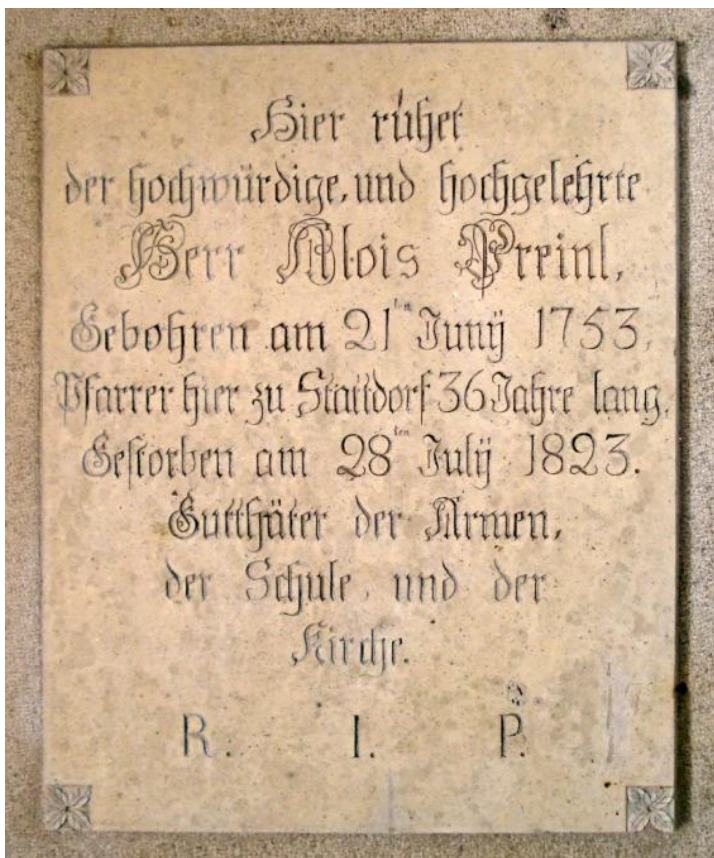 Hier ruhet
der hochwürdige, und hochgelehrte
Herr Alois Preinl,
Gebohren am 21ten Junÿ 1753,
Pfarrer hier zu Stattdorf 36 Jahre lang,
Gestorben am 28ten Julÿ 1823.
Gutthäter der Armen,
der Schule, und der
Kirche.
R. I. P.